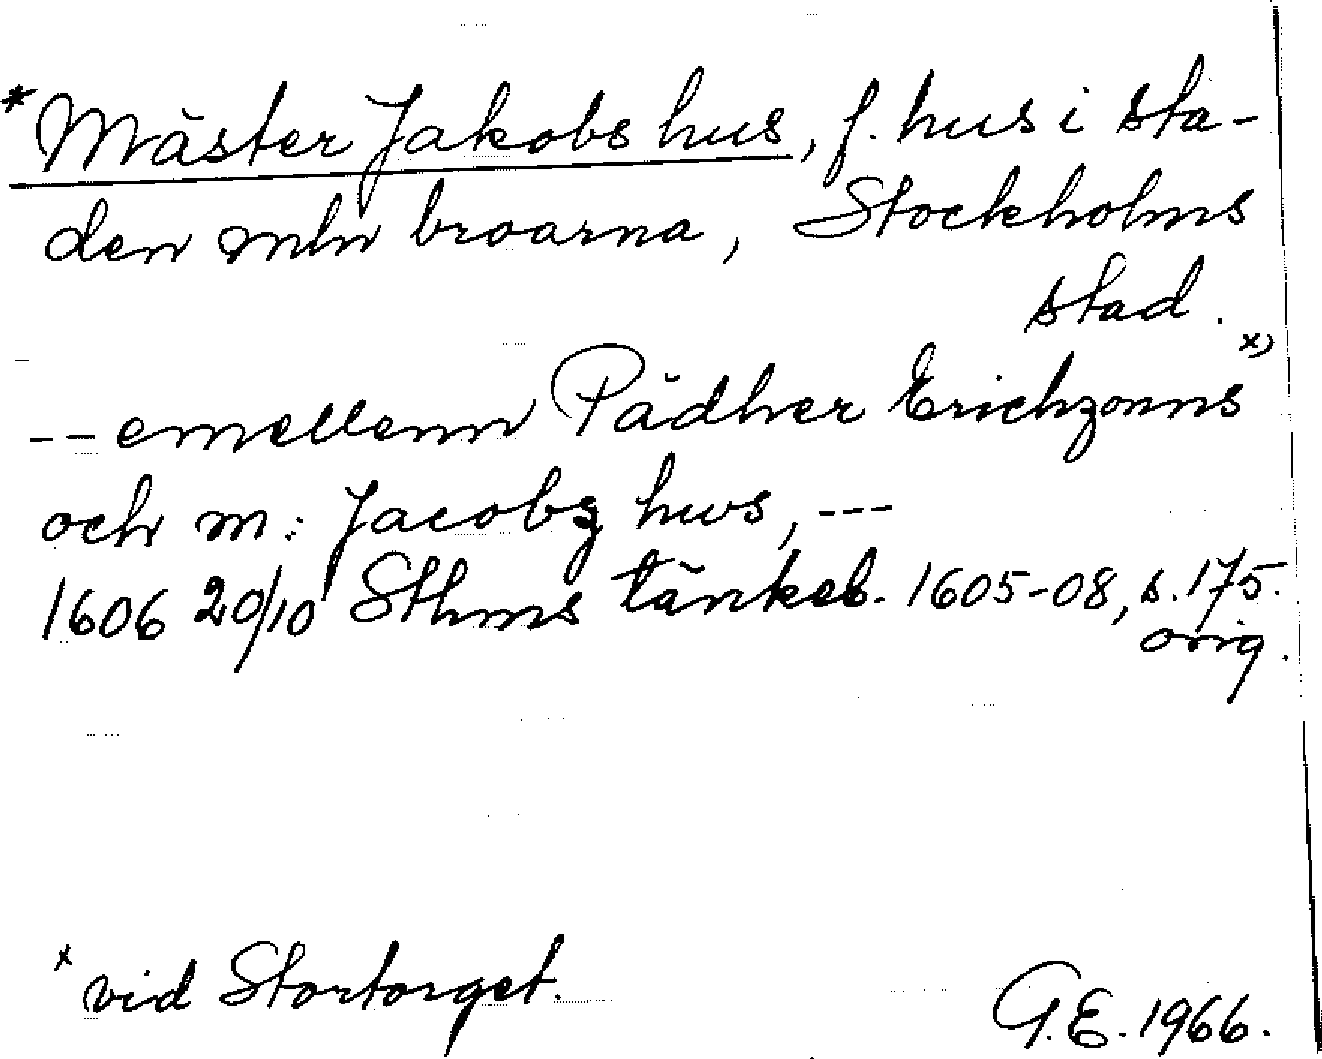 *Mäster Jakobs hus, f. hus i sta-
den mln broarna, Stockholms
stad.
-- emellenn Pädher Erichzonns x)
och m: Jacobz hws, ---
1606 20/10 Sthms tänkeb. 1605-08, s. 175.
orig.
x vid Stortorget.
G.E. 1966.